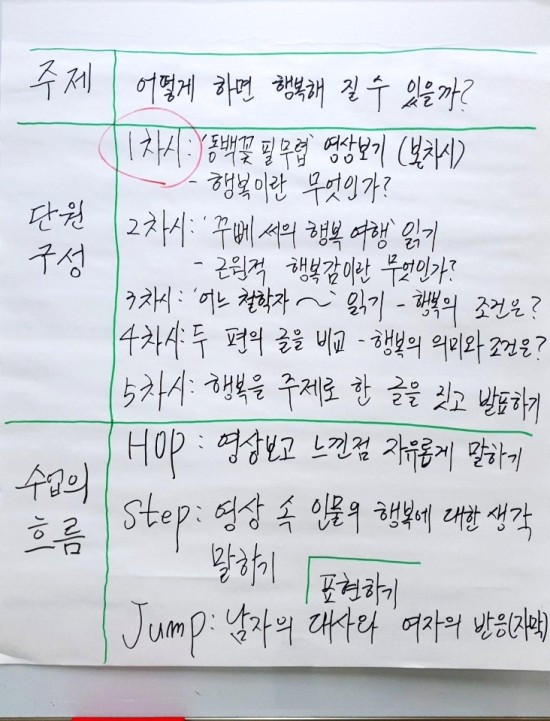 주제
어떻게 하면 행복해 질 수 있을까?
단원
구성
1차시: '동백꽃 필 무렵' 영상보기 (본차시)
- 행복이란 무엇인가?
2차시: '꾸뻬 씨의 행복 여행' 읽기
- 근원적 행복감이란 무엇인가?
3차시: '어느 철학자 ~' 읽기 - 행복의 조건은?
4차시: 두 편의 글을 비교 - 행복의 의미와 조건은?
5차시: 행복을 주제로 한 글을 짓고 발표하기
수업의
흐름
HOP: 영상보고 느낀점 자유롭게 말하기
Step: 영상 속 인물의 행복에 대한 생각
말하기
표현하기
Jump: 남자의 대사와 여자의 반응(자막)